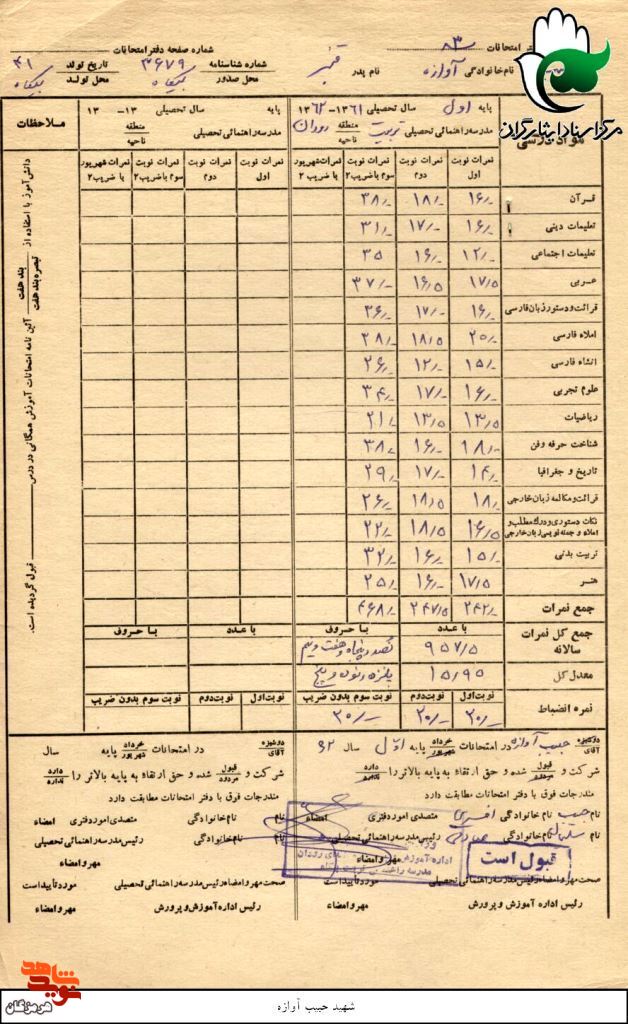 شماره صفحه دفتر امتحانات
امتحانات ۸۳
نام خانوادگی آوازه نام پدر قنبر شماره شناسنامه ۳۶۷۹ تاریخ تولد ۴۱
محل صدور بیکاه محل تولد بیکاه
مرکز اسناد ایثارگران
پایه اول سال تحصیلی ۱۳۶۱-۱۳۶۲ پایه سال تحصیلی ۱۳-۱۳
مدرسه راهنمائی تحصیلی تربیت منطقه ناحیه رودان مدرسه راهنمائی تحصیلی منطقه ناحیه ملاحظات
مواد درسی
نمرات نوبت اول نمرات نوبت دوم نمرات نوبت سوم با ضریب ۲ نمرات شهریور با ضریب ۲ نمرات نوبت اول نمرات نوبت دوم نمرات نوبت سوم با ضریب ۲ نمرات شهریور با ضریب ۲
قرآن ۱۶/- ۱۸/- ۳۸/-
تعلیمات دینی ۱۶/- ۱۷/- ۳۱/-
تعلیمات اجتماعی ۱۲/- ۱۶/- ۳۵
عربی ۱۷/۵ ۱۶/۵ ۳۷/-
قرائت و دستور زبان فارسی ۱۶/- ۱۷/- ۳۶/-
املاء فارسی ۲۰/- ۱۸/۵ ۳۸/-
انشاء فارسی ۱۵/- ۱۲/- ۲۶/-
علوم تجربی ۱۶/- ۱۷/- ۳۴/-
ریاضیات ۱۳/۵ ۱۳/۵ ۲۱/-
شناخت حرفه و فن ۱۸/- ۱۶/- ۳۸/-
تاریخ و جغرافیا ۱۴/- ۱۷/- ۲۹/-
قرائت و مکالمه زبان خارجی ۱۸/- ۱۸/۵ ۲۶/-
نکات دستوری و درک مطلب و املاء و جمله نویسی زبان خارجی ۱۶/۵ ۱۸/۵ ۲۲/-
تربیت بدنی ۱۵/- ۱۶/- ۳۲/-
هنر ۱۷/۵ ۱۶/- ۲۵/-
جمع نمرات ۲۴۲/- ۲۴۷/۵ ۴۶۸/-
با عدد با حروف با عدد با حروف
جمع کل نمرات سالانه ۹۵۷/۵ نهصد و پنجاه و هفت و نیم
معدل کل ۱۵/۹۵ پانزده و نود و پنج
نوبت اول نوبت دوم نوبت سوم بدون ضریب نوبت اول نوبت دوم نوبت سوم بدون ضریب
نمره انضباط ۲۰/- ۲۰/- ۲۰/-
دانش آموز با استفاده از بند هفت تبصره بند هفت آئین نامه امتحانات آموزش همگانی در درس قبول گردیده است.
دوشیزه آقای حبیب آوازه در امتحانات خرداد شهریور پایه اول سال ۶۲
شرکت و قبول مردود شده و حق ارتقاء به پایه بالاتر را دارد ندارد
مندرجات فوق با دفتر امتحانات مطابقت دارد
نام حبیب نام خانوادگی متصدی امور دفتری امضاء
نام نام خانوادگی رئیس مدرسه راهنمائی تحصیلی
مهر و امضاء
قبول است
صحت مهر و امضاء رئیس مدرسه راهنمائی تحصیلی مورد تأیید است
رئیس اداره آموزش و پرورش مهر و امضاء
دوشیزه آقای در امتحانات خرداد شهریور پایه سال
شرکت و قبول مردود شده و حق ارتقاء به پایه بالاتر را دارد ندارد
مندرجات فوق با دفتر امتحانات مطابقت دارد
نام نام خانوادگی متصدی امور دفتری امضاء
نام نام خانوادگی رئیس مدرسه راهنمائی تحصیلی
مهر و امضاء
صحت مهر و امضاء رئیس مدرسه راهنمائی تحصیلی مورد تأیید است
رئیس اداره آموزش و پرورش مهر و امضاء
نوید شاهد
هرمزگان
شهید حبیب آوازه